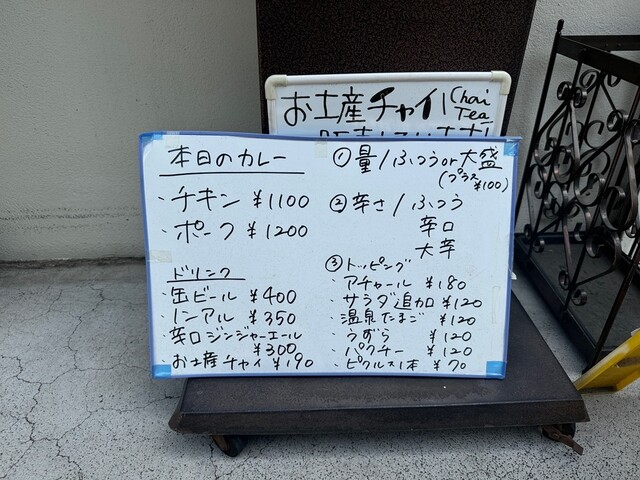 お土産チャイ Chai Tea
本日のカレー
・チキン ¥1100
・ポーク ¥1200
ドリンク
・缶ビール ¥400
・ノンアル ¥350
・辛口ジンジャーエール
¥300
・お土産チャイ ¥190
①量/ふつうor大盛
(プラス¥100)
②辛さ/ふつう
辛口
大辛
③トッピング
・アチャール ¥180
・サラダ追加 ¥120
・温泉たまご ¥120
・うずら ¥120
・パクチー ¥120
・ピクルス1本 ¥70